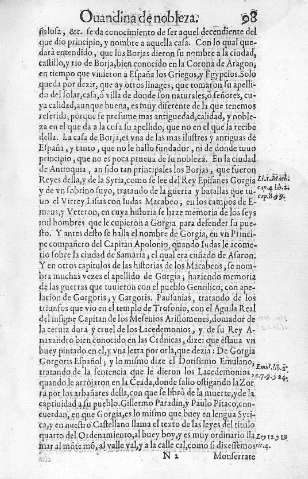 Ouandina de nobleza. 98
stalosa, &c. se da conocimiento de ser aquel decendiente del
que dio principio, y nombre a aquella casa. Con lo qual que-
dará entendido, que los Borjas dieron su nombre a la ciudad,
castillo, y rio de Borja, bien conocido en la Corona de Aragon,
en tiempo que vinieron a España los Griegos, y Egypcios. Solo
queda por dezir, que ay otros linages, que tomaron su apelli-
do del lugar, casa, ò villa de donde son naturales, ò señores, cu-
ya calidad, aunque buena, es muy diferente de la que tenemos
referida, porque se presume mas antiguedad, calidad, y noble-
za en el que da a la casa su apellido, que no en el que la recibe
della. La casa de Borja, es vna de las mas ilustres y antiguas de
España, y tanto, que no se halla fundador, ni de donde tuuo
principio, que no es poca prueua de su nobleza. En la ciudad
de Antroquia, an sido tan principales los Borjas, que fueron
Reyes della, y de la Syria, como se lee del Rey Epifanes Gorgia
y de vn sobrino suyo, tratando de la guerra y batallas que tu-
uo el Virrey Lisias con Iudas Macabeo, en los campos de E-
maus, y Veteron, en cuya historia se haze memoria de los seys
mil hombres que le cupieron a Gorgia para defender su pue-
sto. Y antes desto se halla el nombre de Gorgia, en vn Princi-
pe compañero del Capitan Apolonio, quando Iudas le acome-
tio sobre la ciudad de Samaria, el qual era ciñada de Asaron.
Y en otros capitulos de las historias de los Macabeos, se nom-
bra muchas vezes el apellido de Gorgia, haziendo memoria
de las guerras que tuuieron con el pueblo Gentilico, con ape-
lacion de Gorgoris, y Gargoris. Pausanias, tratando de los
triunfos que vio en el templo de Trofonio, con el Aguila Real
del insigne Capitan de los Mesenios Aristomenes, domador de
la ceruiz dura y cruel de los Lacedemonios, y de su Rey A-
naxandro bien conocido en las Cronicas, dize: que estaua vn
buey pintado en el, y vna letra por orla, que dezia: De Gorgia
Gorgoris Español; y lo mismo dize el Donisimo Emulono,
tratando de la sentencia que le dieron los Lacedemonios,
quando le arrojaron en la Ceada, donde salio ostigando la Zor
ra por los arbañares della, con que se librò de la muerte, y de la
captiuidad a su pueblo. Gillermo Paradin, y Paulo Pitaco, con-
cuerdan, en que Gorgia, es lo mismo que buey en lengua Syri-
ca, y en nuestro Castellano llama el texto de las leyes del titulo
quarto del Ordenamiento, al buey boy, y es muy ordinario lla-
mar al mote mõ, al valle val, y a la calle cal, como si dixessemos
N 2 Monserrate